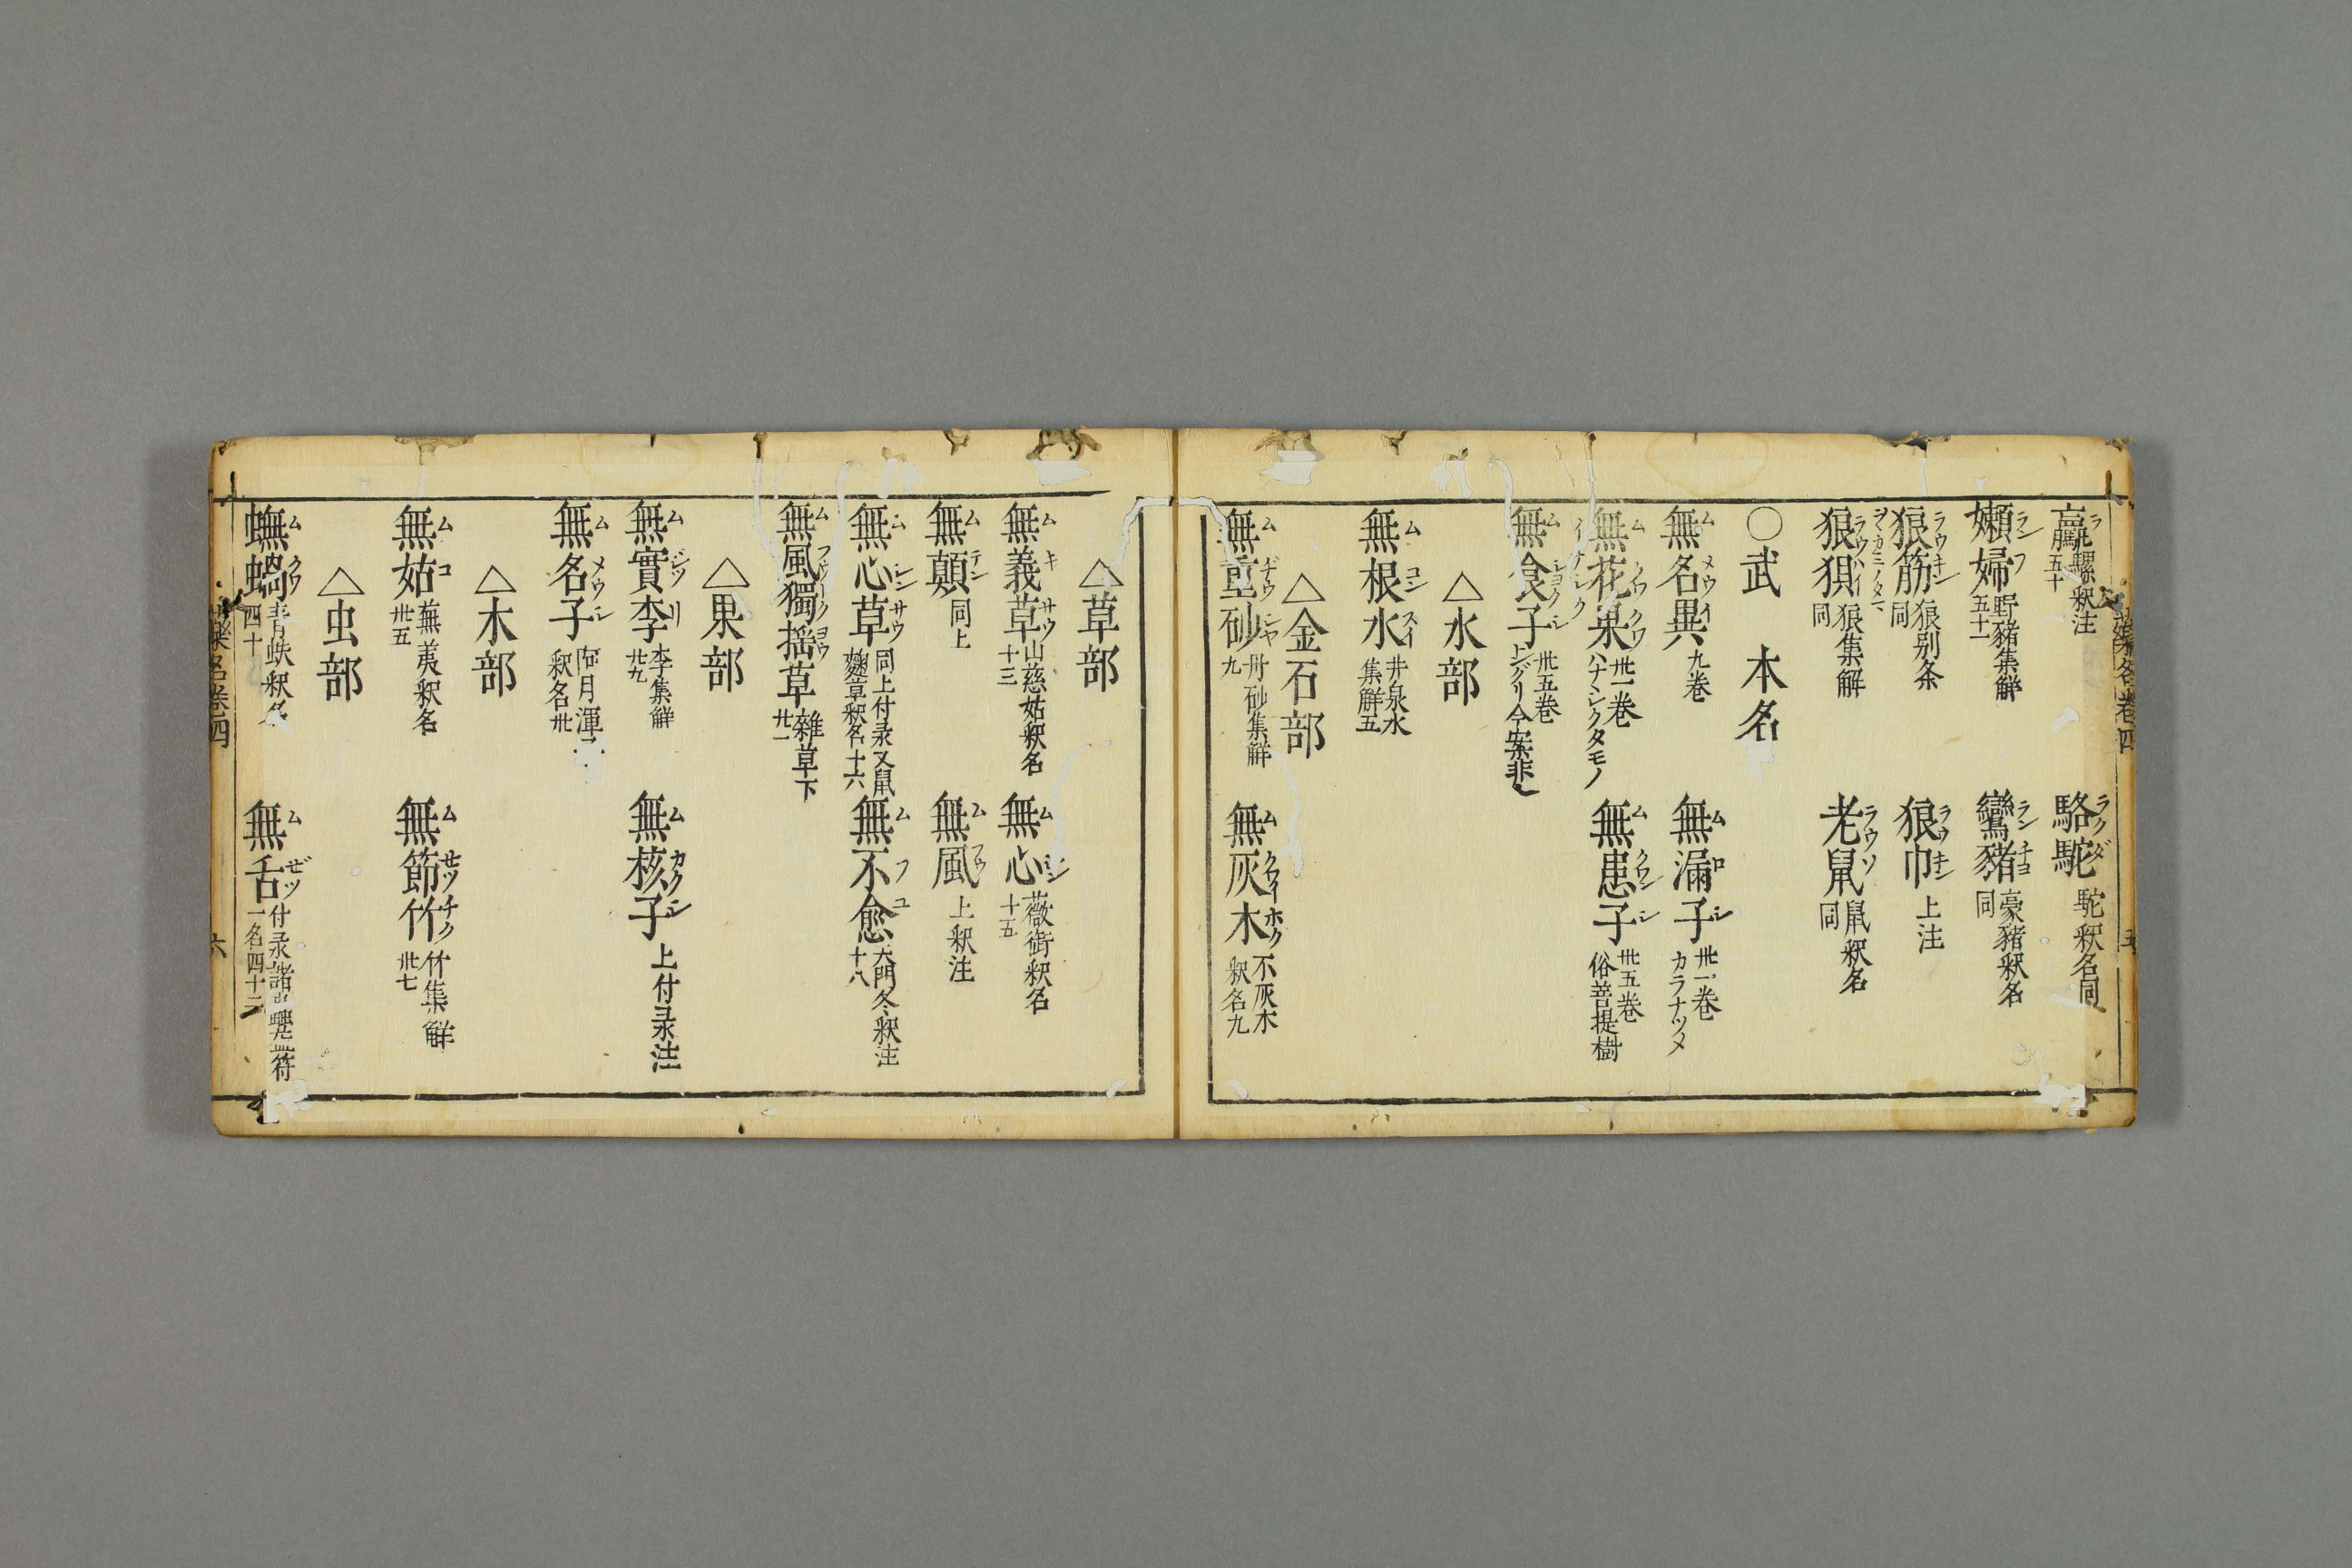 騾釈注五十 駱駝ラクダ 駝釈名同
嬾婦ランフ 野豬集觧五十一 鸞豬ランチヨ 豪豬釈名同
狼筋ラウキン 狼别条同 狼巾ラウキン 上注
狼狽ラウハイ 狼集解同 老鼠ラウソ 鼠釈名同
〇武 本名
無名異ムメウイ 九巻 無漏子ムロシ 卅一巻カラナツメ
無花果ムクワクワ 卅一巻ハナシクタモノ イチシク 無患子ムクワンシ 卅五巻俗菩提樹
無食子ムシヨクシ 卅五巻 今案非
△水部
無根水ムコンスイ 井泉水集觧五
△金石部
無重砂ムヂウシヤ 丹砂集觧九 無灰木ムクワイホク 不灰木釈名九
△草部
無義草ムキサウ 山慈姑釈名十三 無心ムシン 薇銜釈名十五
無顛ムテン 同上 無風ムフウ 上釈注
無心草ムシンサウ 同上付录又鼠麹草釈名十六 無不愈ムフユ 天門冬釈注十八
無風獨揺草 雜草下廿一
△果部
無實李ムジツリ 李集觧廿九 無核子ムカクシ 上付录注
無名子ムメウシ 阿月渾 釈名卅
△木部
無姑ムコ 蕪荑釈名卅五 無節竹ムセツチク 竹集觧卅七
△虫部
蟱蝸ムクワ 青蚨釈名四十 無舌ムゼツ 付录諸 一名四十二
巻四 六